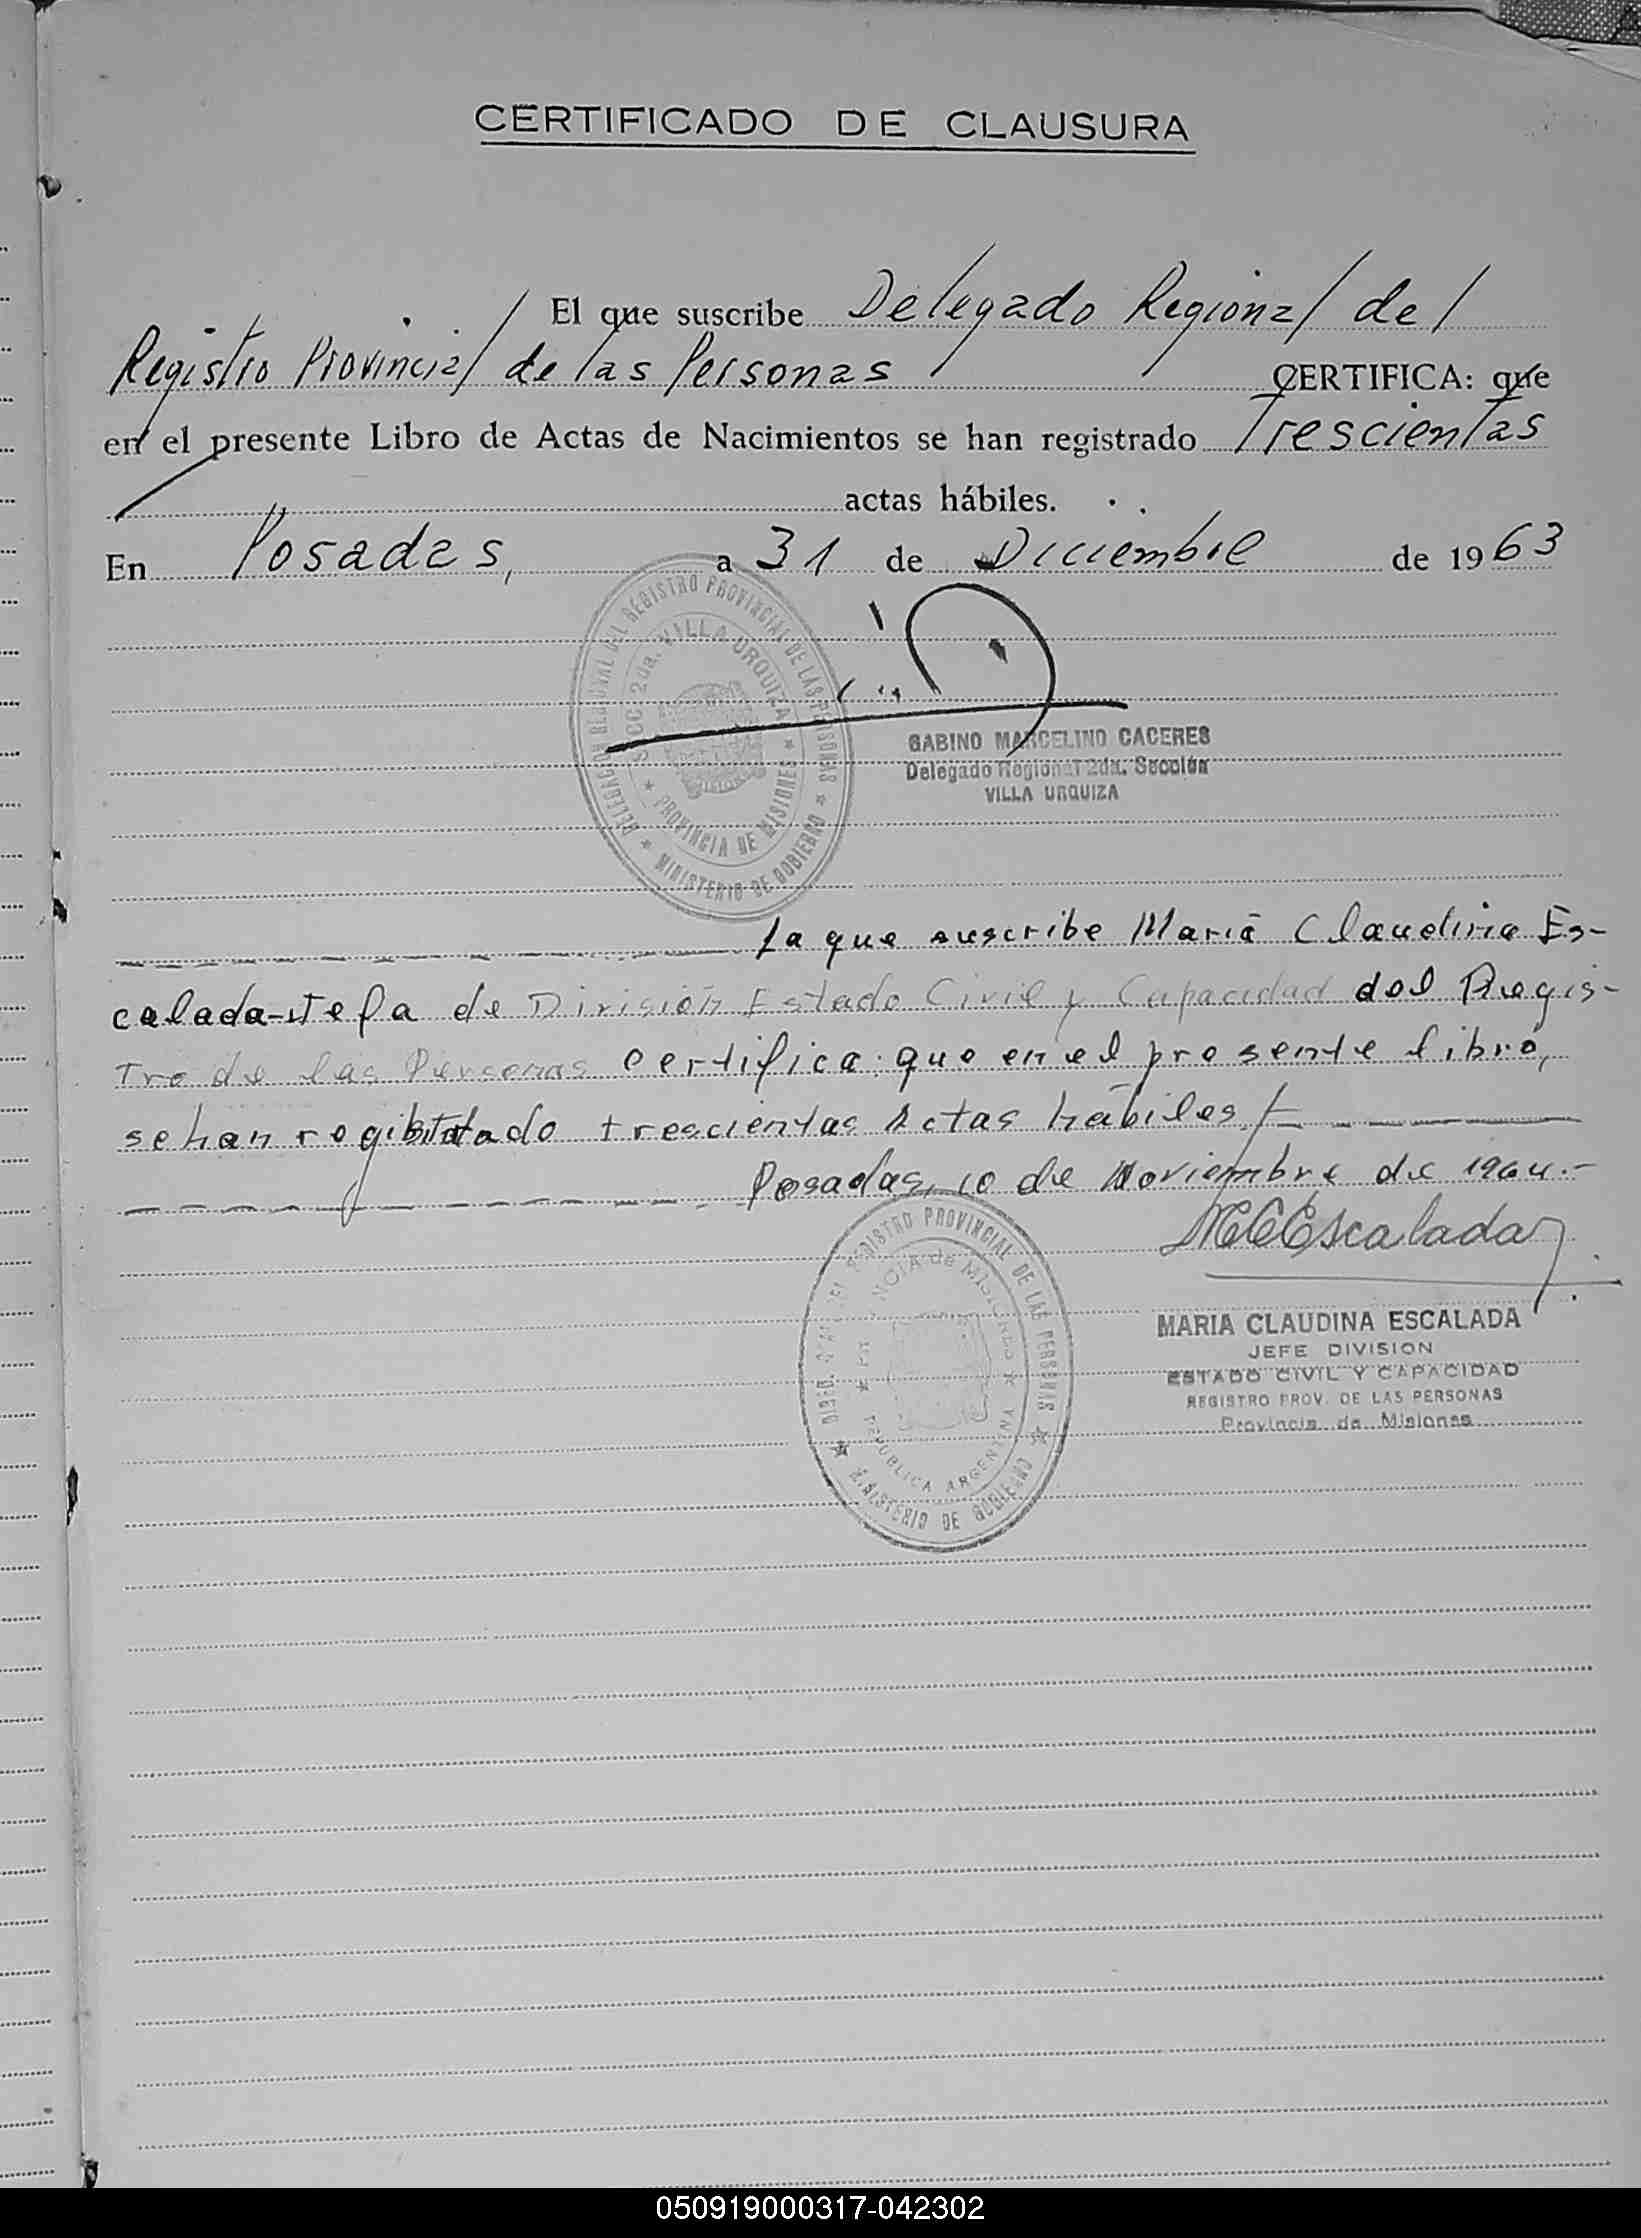 CERTIFICADO DE CLAUSURA
El que suscribe Delegado Regional del
Registro Provincial de las Personas CERTIFICA: que
en el presente Libro de Actas de Nacimientos se han registrado Trescientas
actas hábiles.
En Posadas, a 31 de Diciembre de 1963
DELEGADO REGIONAL DEL REGISTRO PROVINCIAL DE LAS PERSONAS
SECC. 2da. VILLA URQUIZA
PROVINCIA DE MISIONES
MINISTERIO DE GOBIERNO
GABINO MARCELINO CACERES
Delegado Regional 2da. Sección
VILLA URQUIZA
La que suscribe Maria Claudina Es-
calada-Jefa de División Estado Civil y Capacidad del Regis-
tro de las Personas certifica: que en el presente libro,
se han registrado trescientas actas hábiles.
Posadas, 10 de Noviembre de 1964.-
MCEscalada
REGISTRO PROVINCIAL DE LAS PERSONAS
de Misiones
REPUBLICA ARGENTINA
MINISTERIO DE GOBIERNO
MARIA CLAUDINA ESCALADA
JEFE DIVISION
ESTADO CIVIL Y CAPACIDAD
REGISTRO PROV. DE LAS PERSONAS
Provincia de Misiones
050919000317-042302